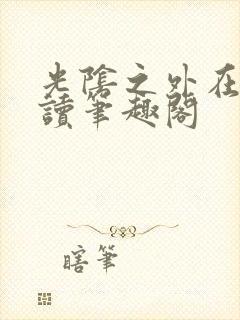 光陰之外在
讀筆趣閣
瞎筆